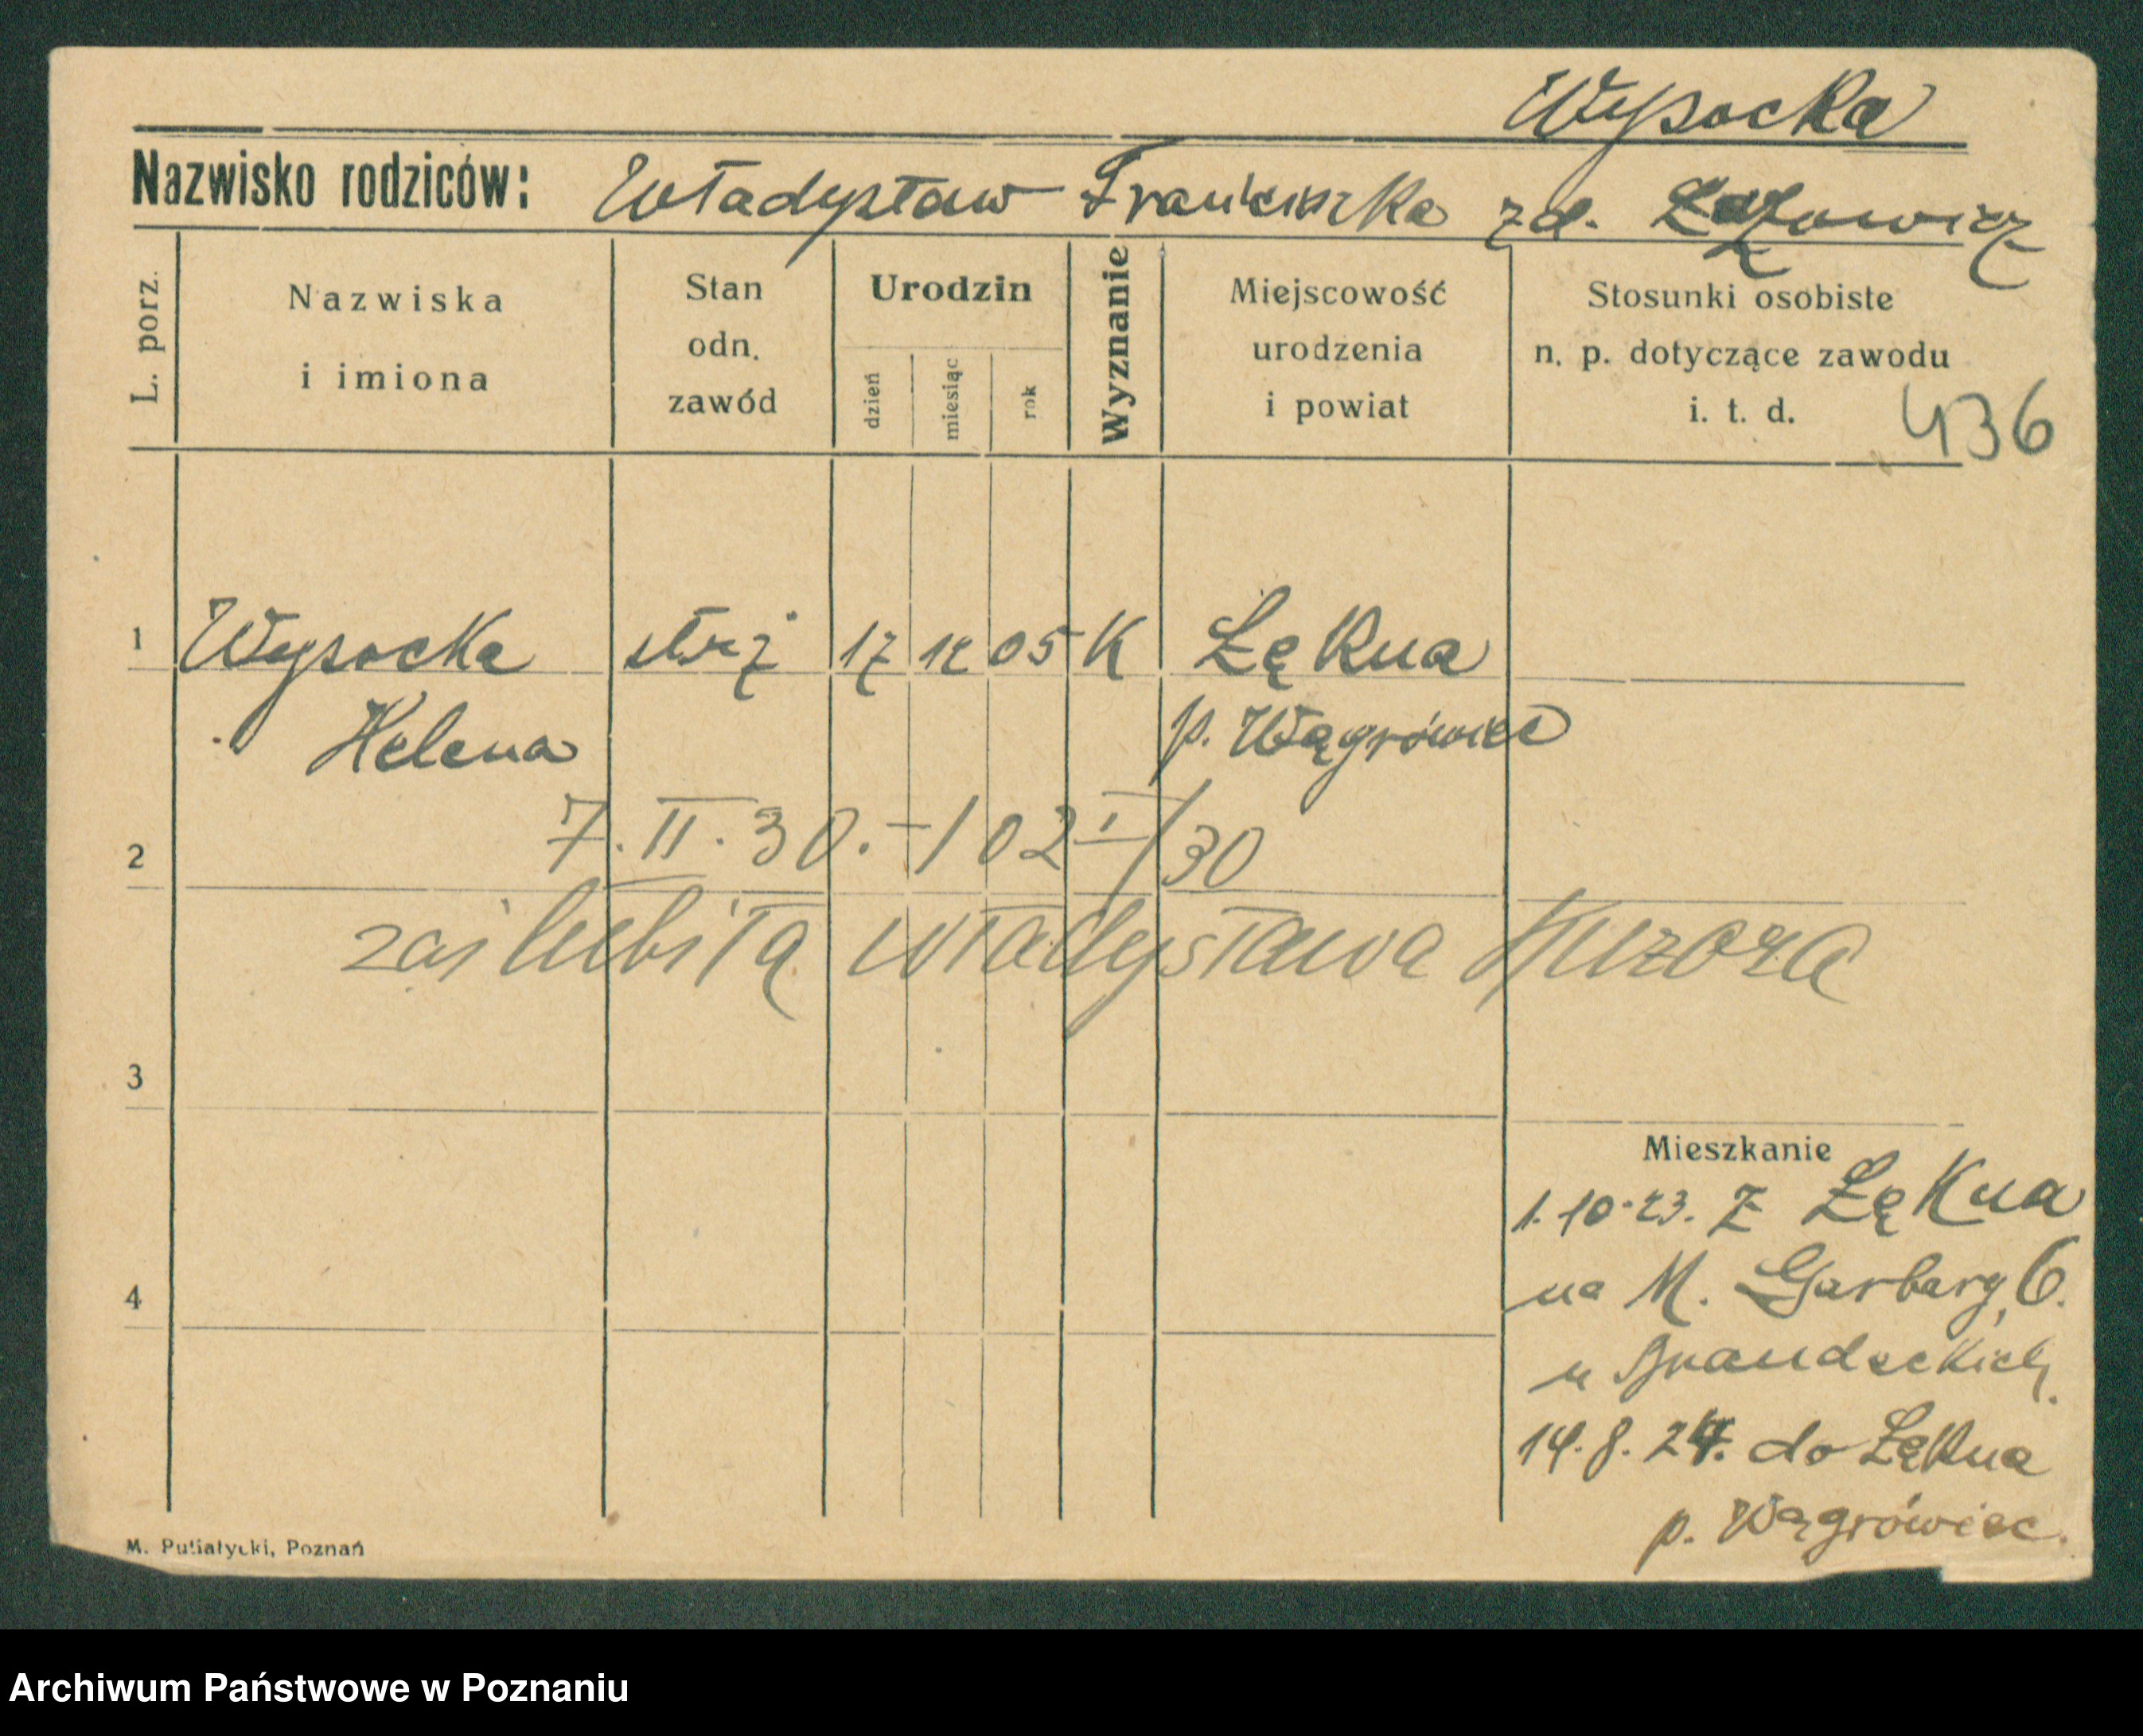 Wysocka
Nazwisko rodziców: Władysław Franciszka zd.
L. porz.
Nazwiska
i imiona
Stan
odn.
zawód
Urodzin
dzień
miesiąc
rok
Wyznanie
Miejscowość
urodzenia
i powiat
Stosunki osobiste
n. p. dotyczące zawodu
i. t. d.
436
1 Wysocka 17 12 05 K Łękna
Helena p. Wągrówiec
7. II. 30. - 102 I/30
2
zaślubiła Władysława
3
Mieszkanie
1.10.23. z Łękna
na M. Garbary 6.
4
u
14.8.24. do Łękna
p. Wągrówiec.
M. Putiatycki, Poznań
Archiwum Państwowe w Poznaniu